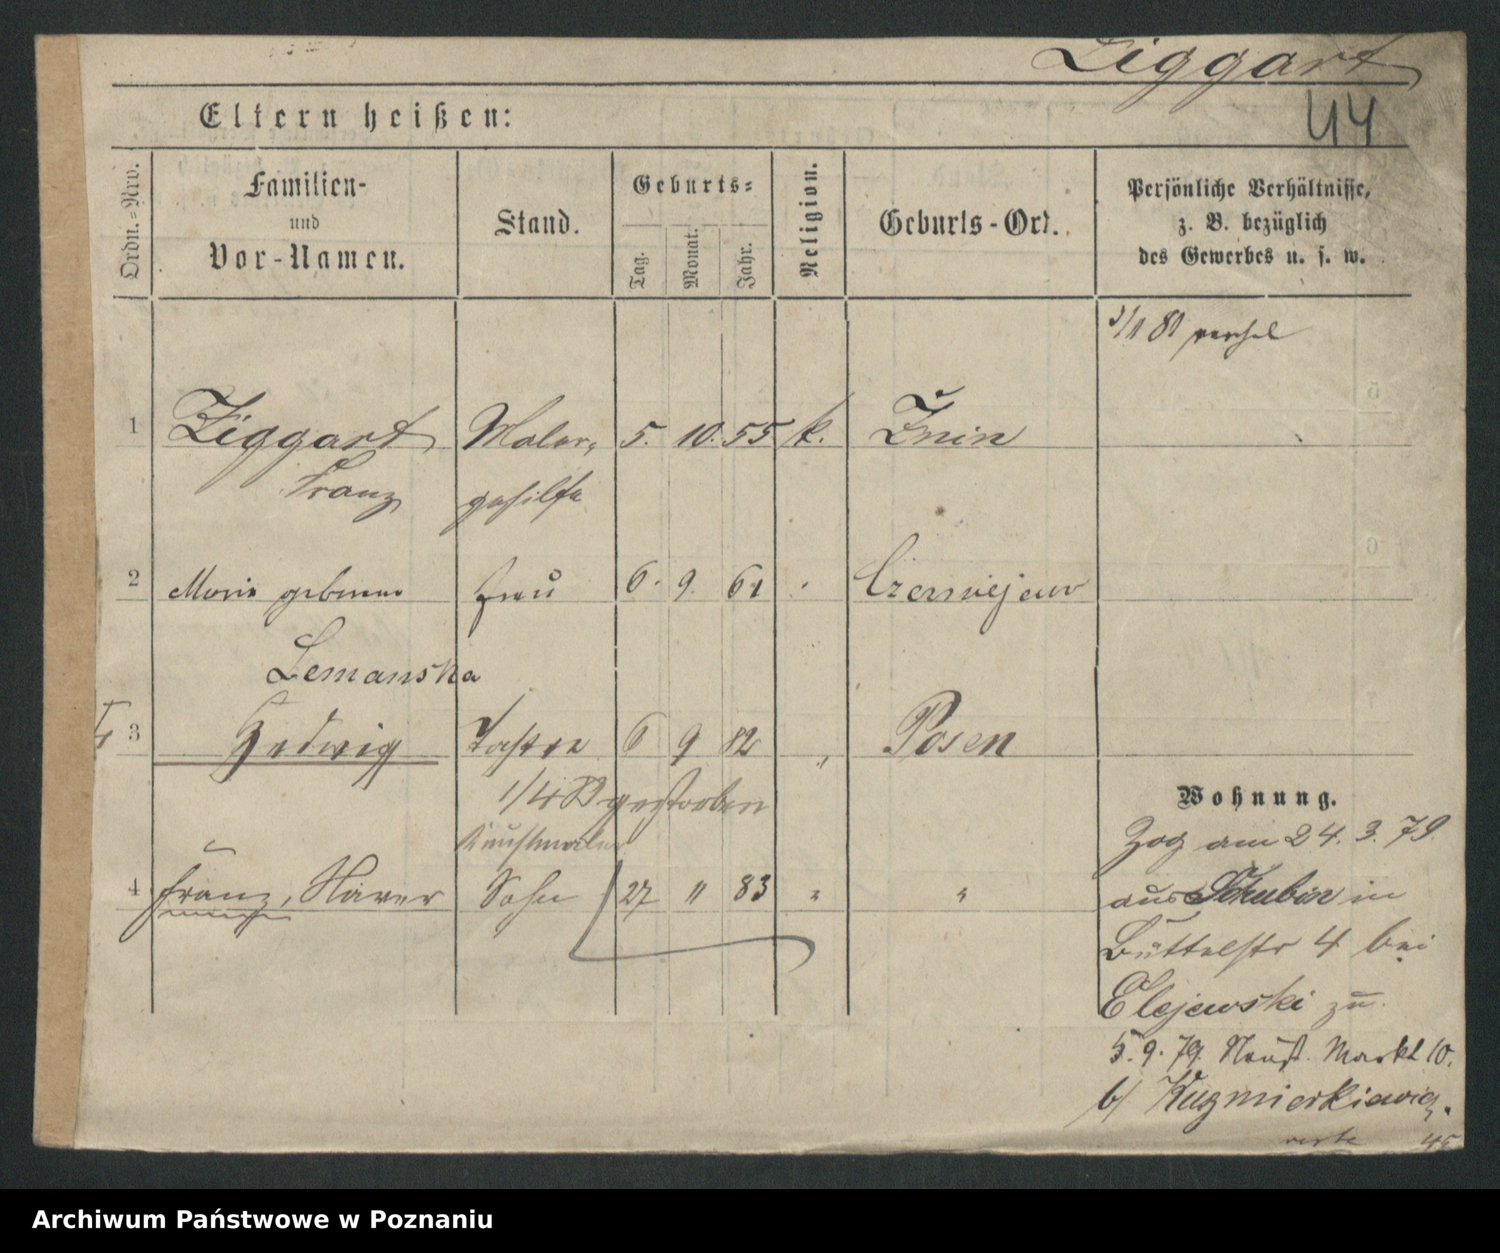 Ziggart
44
Eltern heißen:
Ordn.-Nro.
Familien-
und
Vor-Namen.
Stand.
Geburts-
Tag.
Monat.
Jahr.
Religion.
Geburts-Ort.
Persönliche Verhältnisse,
z. B. bezüglich
des Gewerbes u. s. w.
1 Ziggart Maler- 5. 10. 55 k. Żnin
Franz gehilfe
2 Marie geborene Frau 6. 9. 61 Czerniejewo
Lemanska
3 Hedwig Tochter 6 9 82 " Posen
1/4 83 gestorben
Kunstmaler
4 Franz, Xaver Sohn 27 " 83 " "
Wohnung.
Zog am 24. 3. 79
aus Schubin in
Büttelstr 4 bei
Elejewski zu.
5. 9. 79. Neust. Markt 10.
b/ Kuzmierkiewicz.